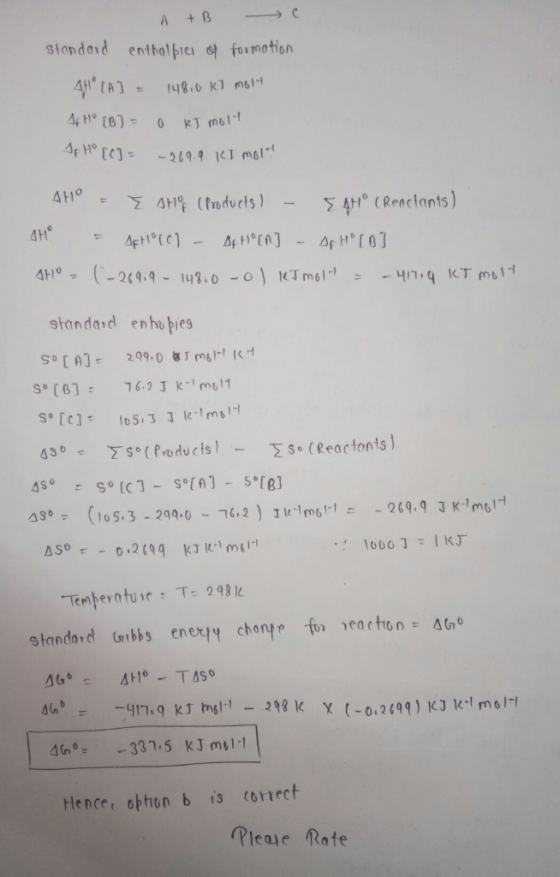 A + B → C
Standard enthalpies of formation
ΔfH° [A] = 148.0 KJ mol-1
ΔfH° [B] = 0 KJ mol-1
ΔfH° [C] = -269.9 KJ mol-1
ΔH° = Σ ΔH°f (Products) - Σ ΔfH° (Reactants)
ΔH° = ΔfH°[C] - ΔfH°[A] - ΔfH°[B]
ΔH° = (-269.9 - 148.0 - 0) KJ mol-1 = -417.9 KJ mol-1
Standard entropies
S° [A] = 299.0 J mol-1 K-1
S° [B] = 76.2 J K-1 mol-1
S° [C] = 105.3 J K-1 mol-1
ΔS° = Σ S° (Products) - Σ S° (Reactants)
ΔS° = S° [C] - S°[A] - S°[B]
ΔS° = (105.3 - 299.0 - 76.2) J K-1 mol-1 = -269.9 J K-1 mol-1
ΔS° = -0.2699 KJ K-1 mol-1 ∵ 1000 J = 1 KJ
Temperature = T = 298 K
Standard Gibbs energy change for reaction = ΔG°
ΔG° = ΔH° - TΔS°
ΔG° = -417.9 KJ mol-1 - 298 K X (-0.2699) KJ K-1 mol-1
ΔG° = -337.5 KJ mol-1
Hence, option b is correct
Please Rate